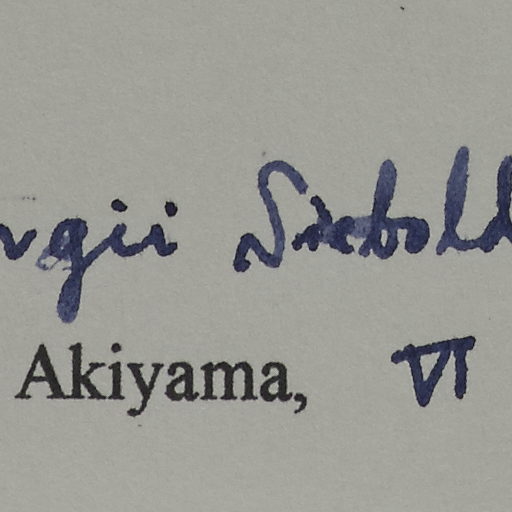 rgii Siebold
Akiyama, VI